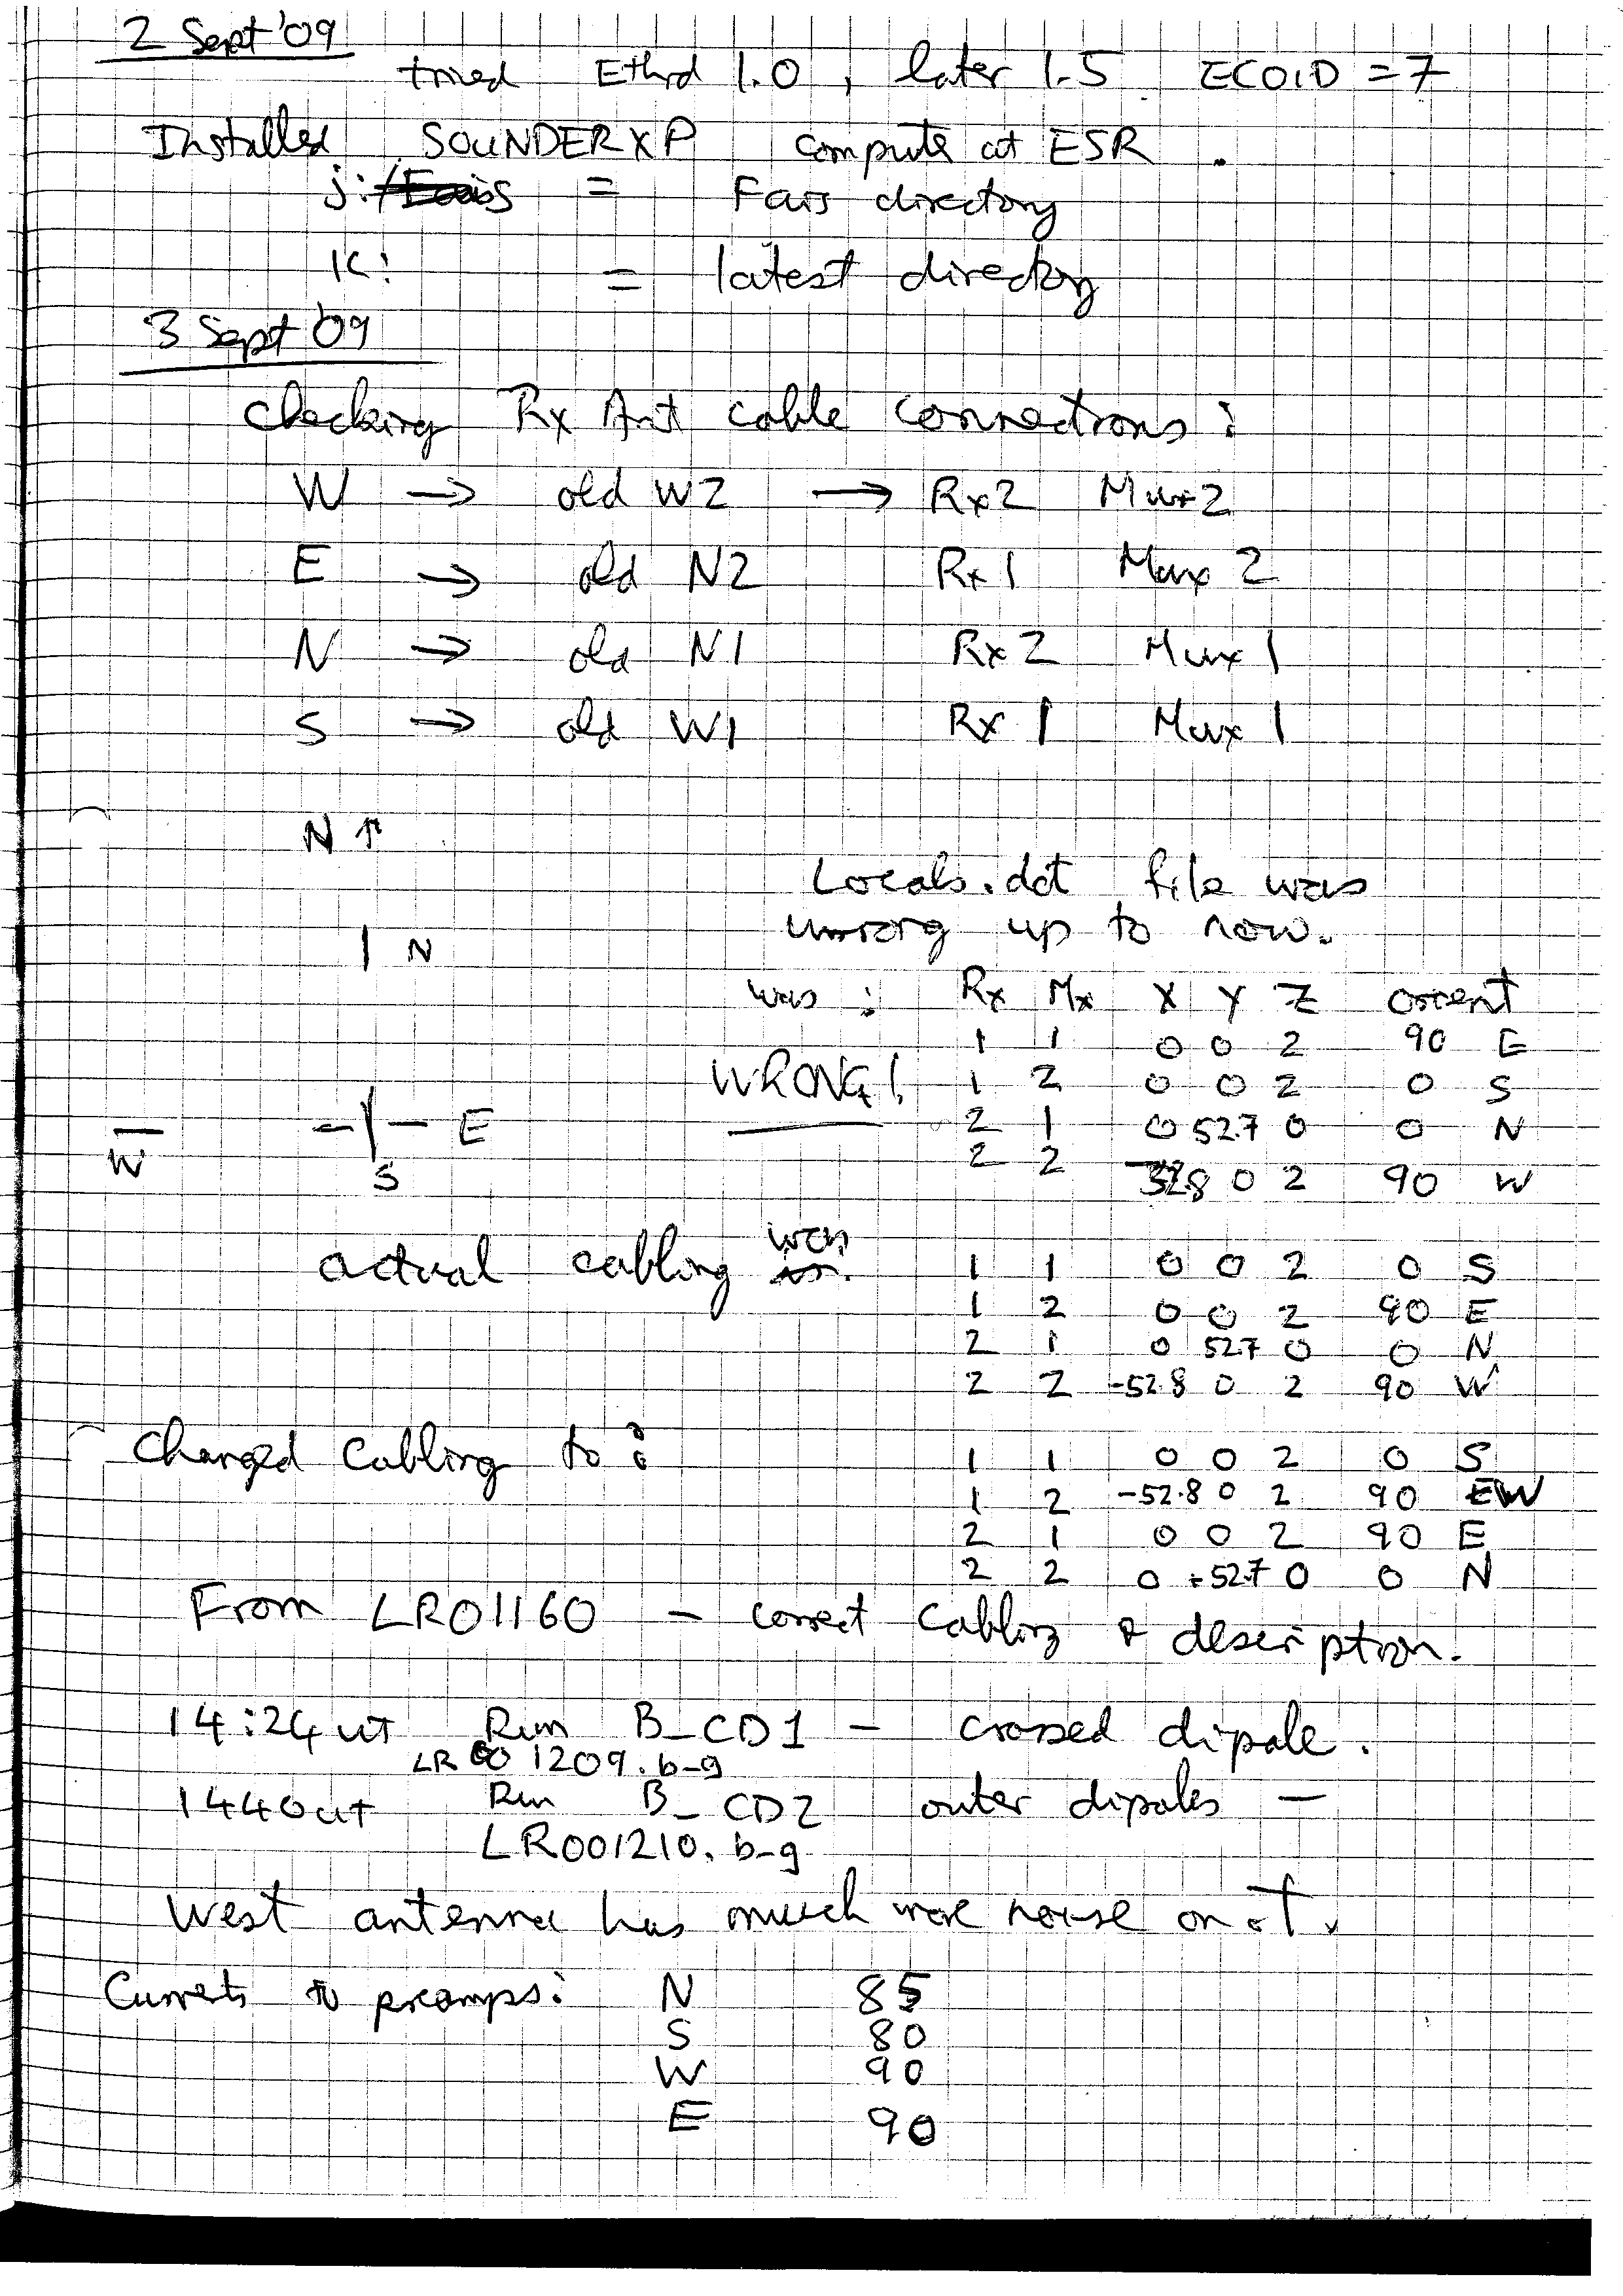 2 Sept '09
tried Ethrd 1.0, later 1.5 ECOID = 7
Installed SOUNDERXP compute at ESR.
j: = Fais directory
K: = latest directory
3 Sept '09
Checking Rx Ant cable connections:
W → old W2 → Rx2 Mux2
E → old N2 Rx1 Mux 2
N → old N1 Rx2 Mux 1
S → old W1 Rx 1 Mux 1
N ↑
Locals.dat file was
wrong up to now.
N
was: Rx Mx X Y Z orient
1 1 0 0 2 90 E
WRONG! 1 2 0 0 2 0 S
E 2 1 0 52.7 0 0 N
W S 2 2 -52.8 0 2 90 W
actual cabling was 1 1 0 0 2 0 S
1 2 0 0 2 90 E
2 1 0 52.7 0 0 N
2 2 -52.8 0 2 90 W
Changed Cabling to: 1 1 0 0 2 0 S
1 2 -52.8 0 2 90 W
2 1 0 0 2 90 E
2 2 0 +52.7 0 0 N
From LR01160 - correct Cabling & description.
14:24 UT Run B_CD1 - crossed dipole.
LR001209.b-g
1440 UT Run B_CD2 outer dipoles -
LR001210.b-g
West antenna has much more noise on it.
Currents to preamps: N 85
S 80
W 90
E 90